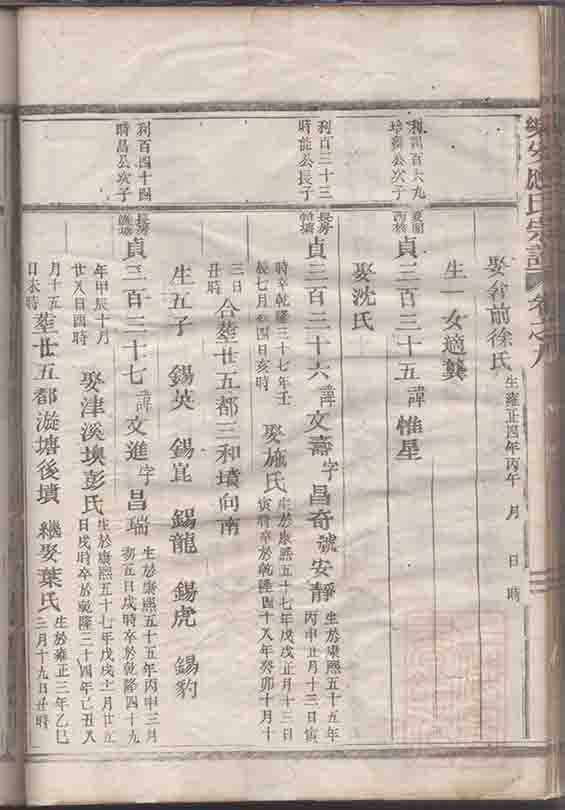 應氏宗譜 卷之九
娶耷前徐氏 生雍正四年丙午 月 日 時
生一女適龔
利百六九
培公次子
貞三百三十五諱惟星
娶沈氏
利百三十三
時能公長子
長房
貞三百三十六諱文壽字昌奇號安靜 生於康熙五十五年
丙申正月十三日寅
時卒乾隆三十七年壬
辰七月初四日亥時 娶施氏 生於康熙五十七年戊戌正月十三日
寅時卒於乾隆四十八年癸卯十月十
三日
丑時 合塟廿五都三和墳向南
生五子 錫英 錫宜 錫龍 錫虎 錫豹
利百四十四
時昌公次子
長房
貞三百三十七諱文進字昌瑞 生於康熙五十五年丙申三月
初五日戌時卒於乾隆四十九
年甲辰十月
廿八日酉時 娶津溪塽彭氏 生於康熙五十七年戊戌十一月廿五
日戌時卒於乾隆三十四年己丑又
月十五
日未時 塟廿五都漩塘後墳 繼娶葉氏 生於雍正三年乙巳
三月十九日丑時